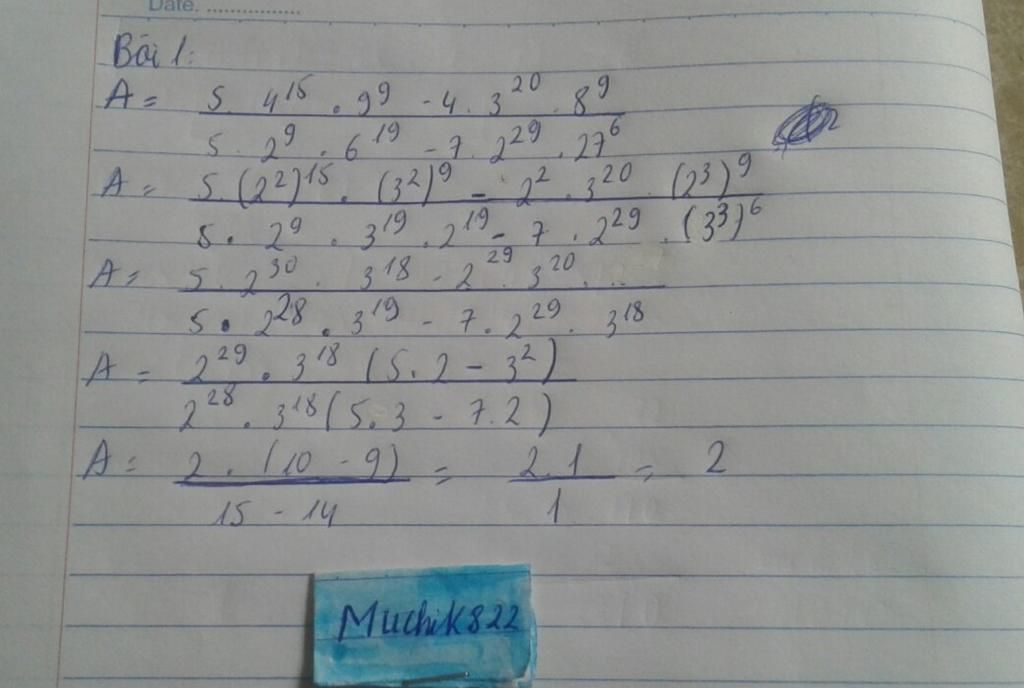 Date. ................
Bài 1:
A = 5 . 4^15 . 9^9 - 4 . 3^20 . 8^9
5 . 2^9 . 6^19 - 7 . 2^29 . 27^6
A = 5 . (2^2)^15 . (3^2)^9 - 2^2 . 3^20 . (2^3)^9
5 . 2^9 . 3^19 . 2^19 - 7 . 2^29 . (3^3)^6
A = 5 . 2^30 . 3^18 - 2^29 . 3^20 . ..
5 . 2^28 . 3^19 - 7 . 2^29 . 3^18
A = 2^29 . 3^18 (5 . 2 - 3^2)
2^28 . 3^18 (5 . 3 - 7 . 2)
A = 2 . (10 - 9) = 2 . 1 = 2
15 - 14 1
Muchik822